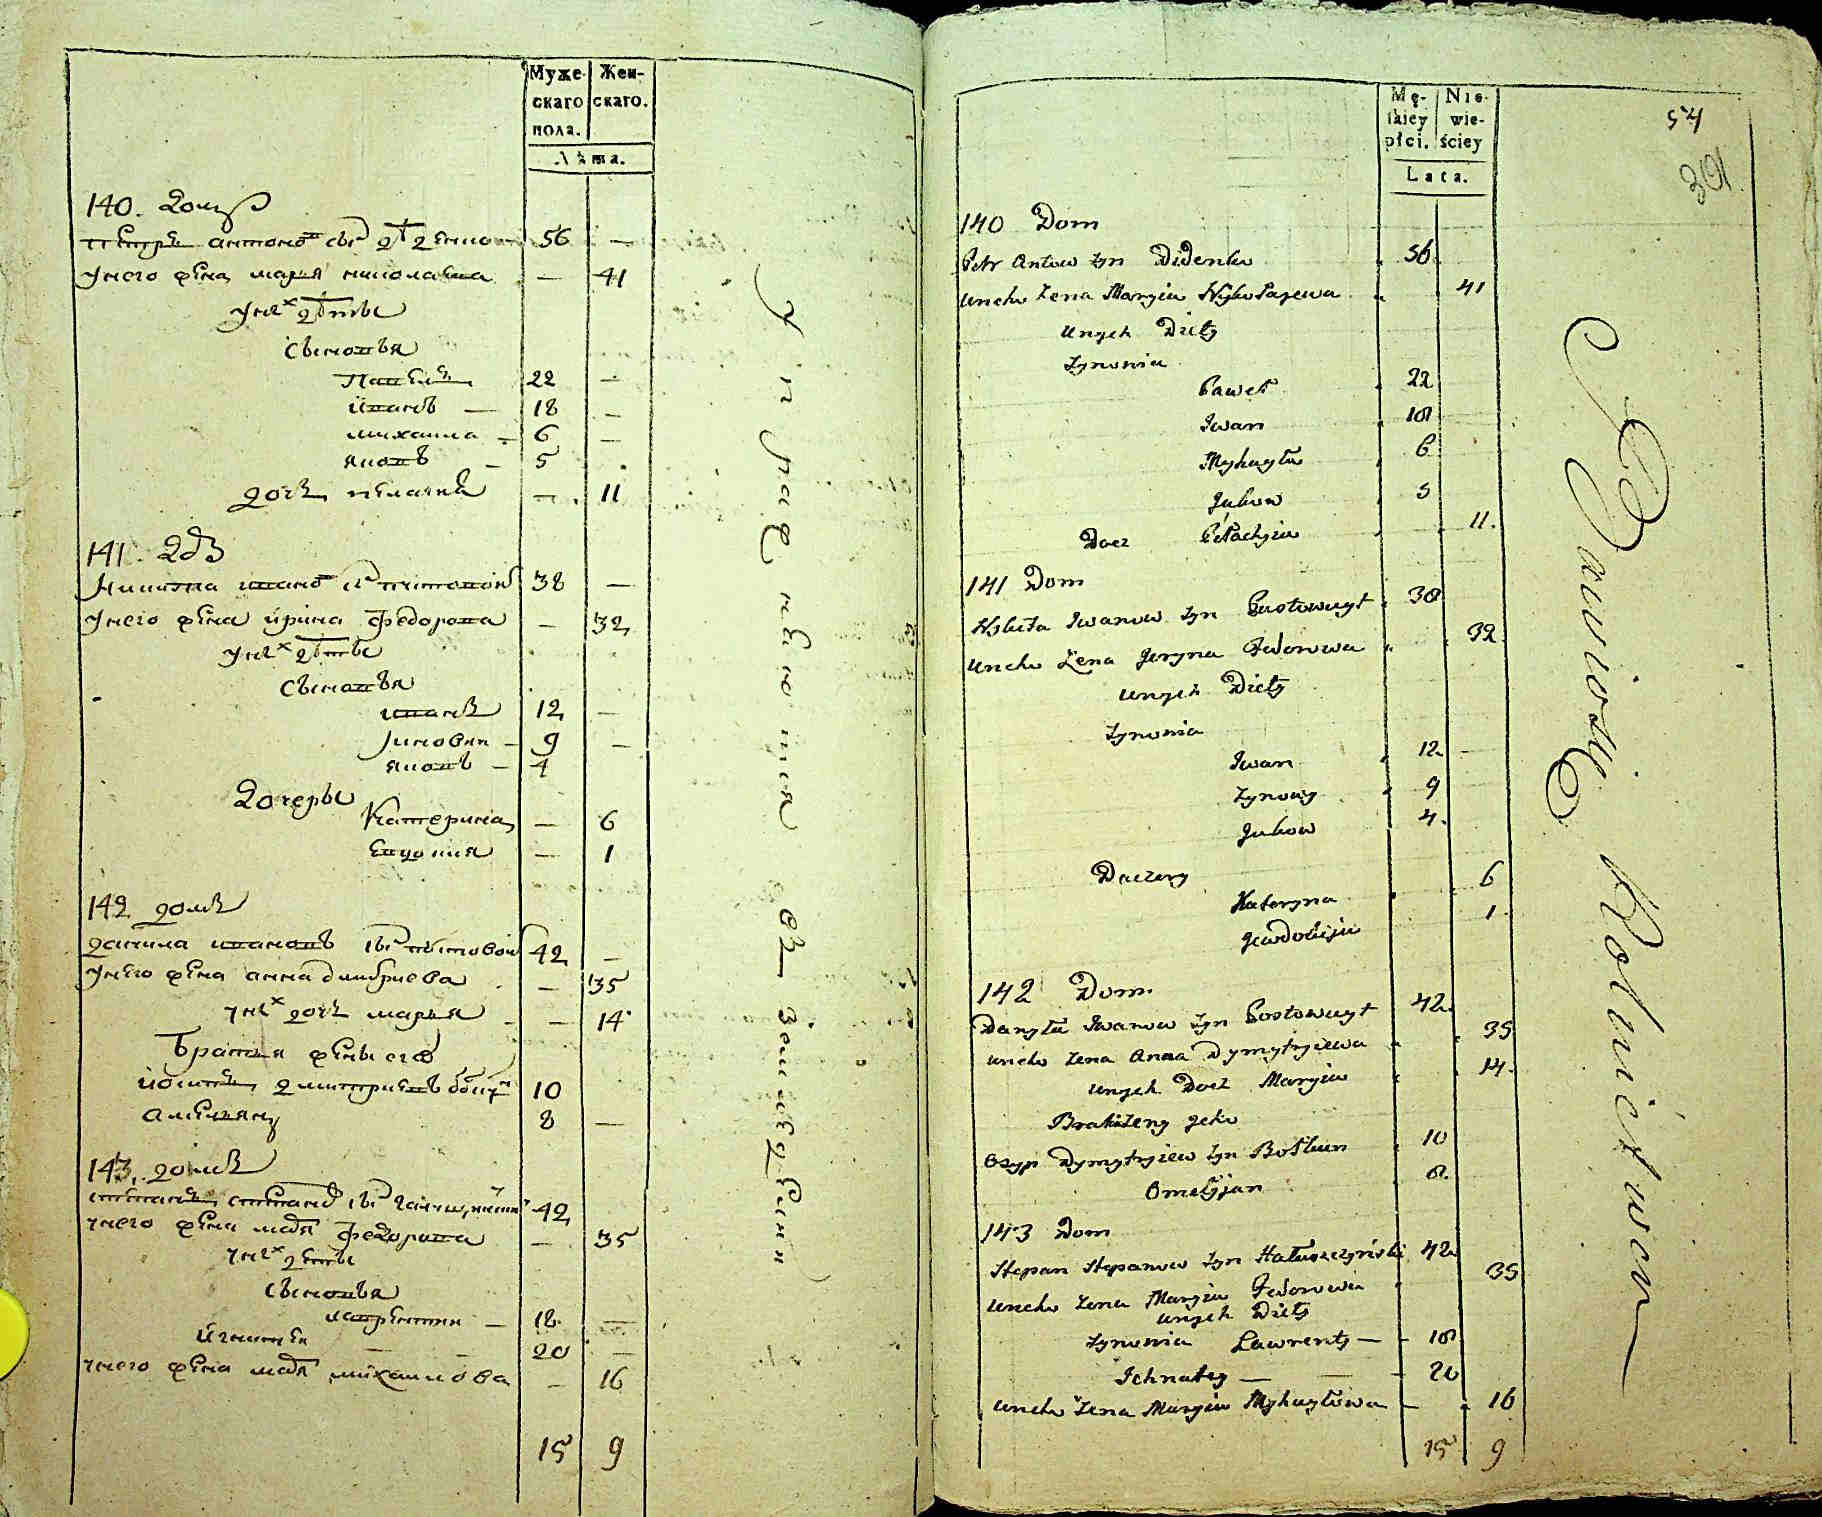 Муже-
скаго
пола.
Жен-
скаго.
Лѣта.
140. домъ
Петръ антоновъ сынъ діденко 56 —
унего жена марья николаева — 41
унихъ дѣтѣ
сыновья
Павелъ 22 —
иванъ — 18 —
михаила — 6 —
яковъ — 5
дочь пелагия — 11
141. домъ
Никита ивановъ сынъ 38 —
унего жена ирина федорова — 32
унихъ дѣтѣ
сыновья
иванъ 12 —
зиновии — 9 —
яковъ — 4
дочеры
Катерина — 6
евдокия — 1
142 домъ
данила ивановъ сынъ 42 —
унего жена анна дмитриева — 35
унихъ дочь марья — 14
братья жены его
иосипъ дмитриевъ 10
амельянъ 8 —
143. домъ
степанъ степановъ сынъ 42
унего жена марья федорова — 35
унихъ дети
сыновья
лаврентии — 18 —
игнатеи — 20 —
унего жена марья михаилова — 16
15 9
упражняются въ земледелии
54
391
Mę-
skiey
płci.
Nie-
wie-
ściey
Lata.
140 Dom
Petr Antow syn Didenko 56
uneho żena Maryia Nykołajewa 41
unych Diety
synowia
Paweł 22
Iwan 18
Mykayła 6
Jakow 5
Docz Pełachyia 11.
141 Dom
Nykita Iwanow syn Postowuyt 38
uneho żena Jeryna Fedorowa 32
unych Diety
synowia
Iwan 12 —
Zynowy 9
Jakow 4.
Doczery
Kateryna 6
Jewdokija 1
142 Dom
Danyła Iwanow syn Postowuyt 42
uneho żena Anna Dymytryiewa 35
unych Docz Maryia 14.
Brati żeny jeho
Osyp Dymytryiew syn Bołkun 10
Omelyjan 8.
143 Dom
Stepan Stepanow syn Hałuszczyński 42
uneho żena Maryia Fedorowa 35
unych Diety
synowia Lawrenty — 18
Ichnatey — 20
uneho żena Maryia Mykayłowa — 16
15 9
Rolnictwem